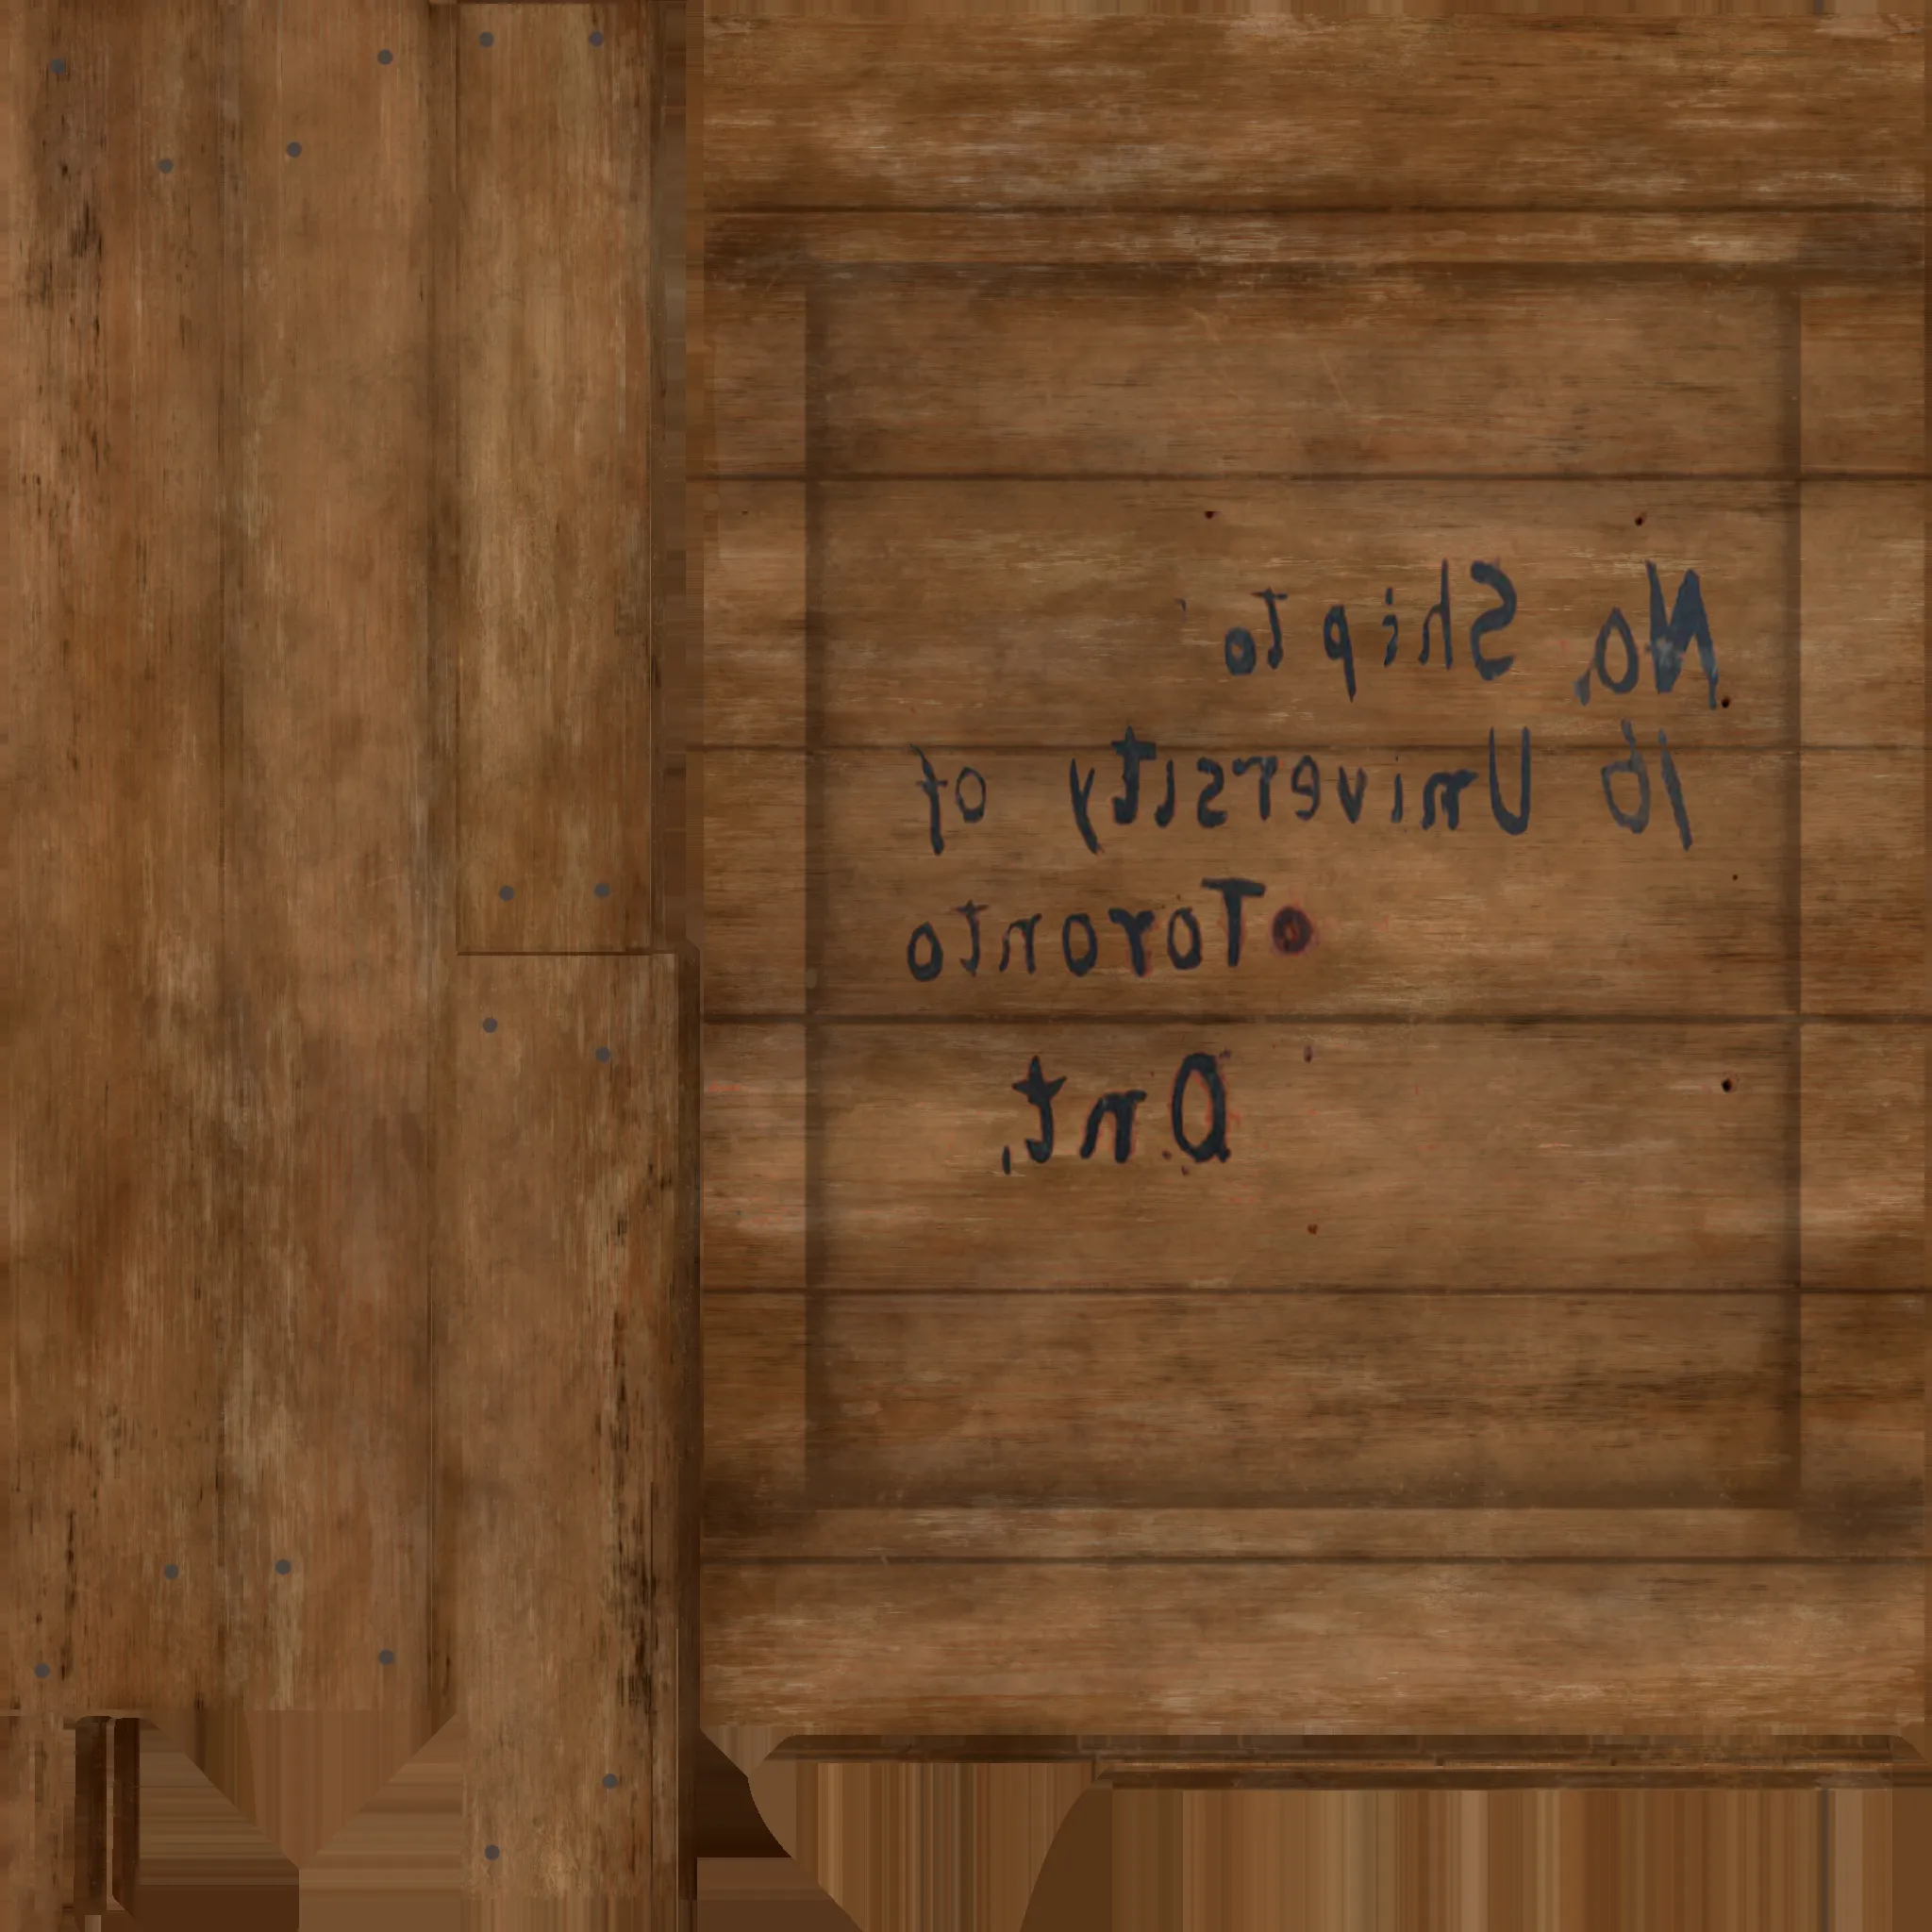 No. Ship to
16 University of
Toronto
Ont.